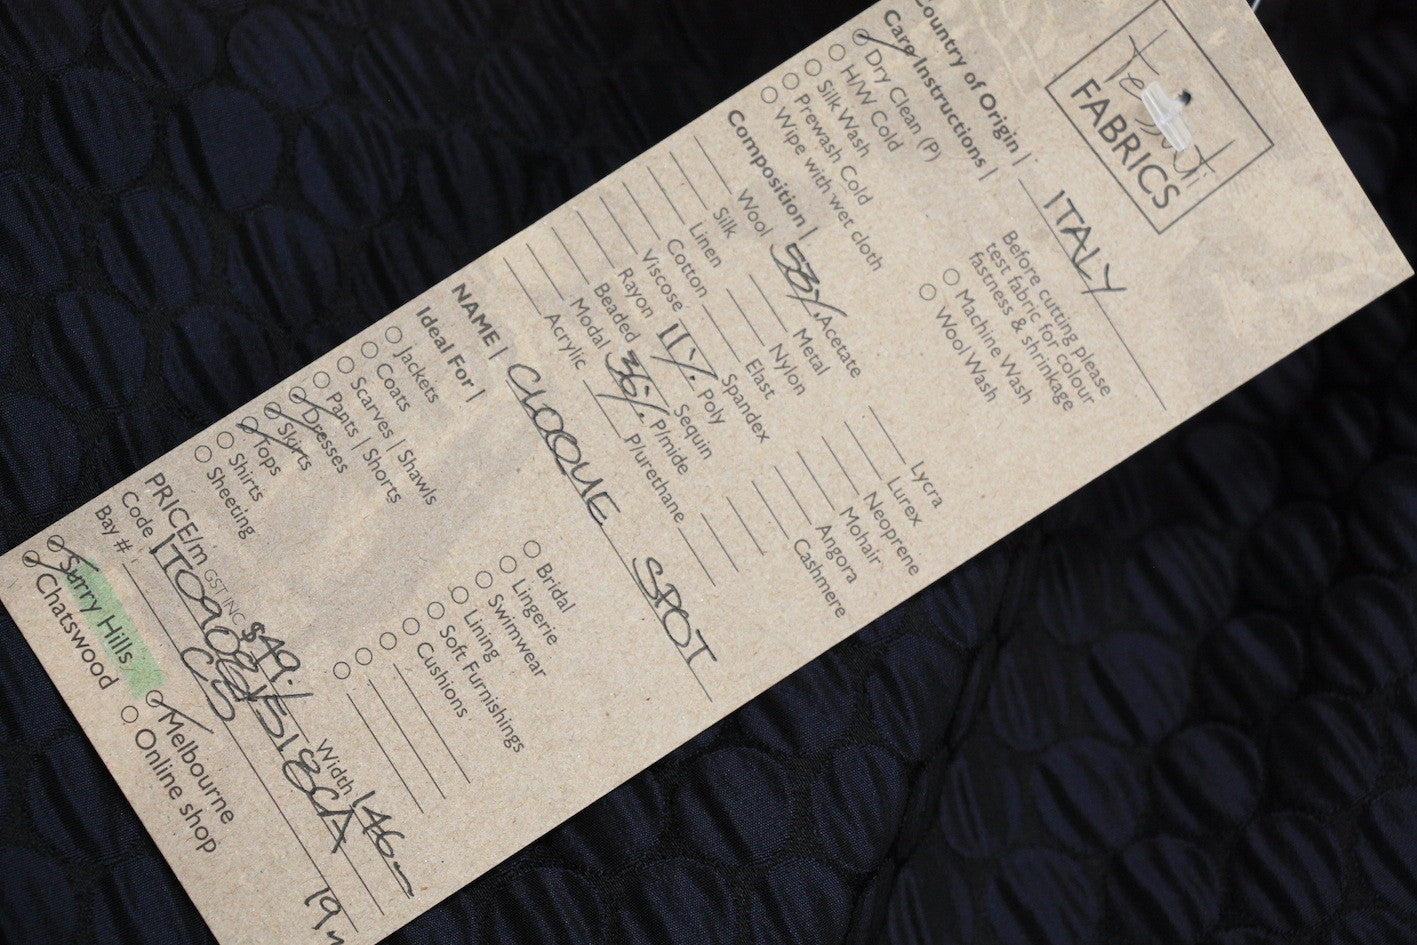 Tessuti
FABRICS
Country of Origin | ITALY
Care Instructions |
Dry Clean (P)
H/W Cold
Silk Wash
Prewash Cold
Wipe with wet cloth
Before cutting please
test fabric for colour
fastness & shrinkage
Machine Wash
Wool Wash
Composition |
Wool 53% Acetate Lycra
Silk Metal Lurex
Linen Nylon Neoprene
Cotton Elast Mohair
Viscose Spandex Angora
Rayon 11% Poly Cashmere
Beaded Sequin
Modal 36% P/mide
Acrylic P/urethane
NAME | CLOQUE SPOT
Ideal For |
Jackets Bridal
Coats Lingerie
Scarves | Shawls Swimwear
Pants | Shorts Lining
Dresses Soft Furnishings
Skirts Cushions
Tops
Shirts
Sheeting
PRICE/m GST INC $49.- Width 146
Code
Bay # CS
Surry Hills Melbourne
Chatswood Online shop